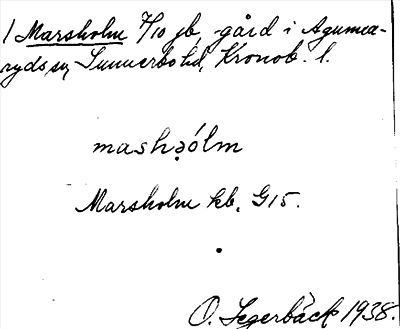 1 Marsholm 7/10 jb, gård i Agunna-
ryds sn, Sunnerbo hd, Kronob. l.
mashọólm
Marsholm kb. G15.
O. Segerbäck 1938.